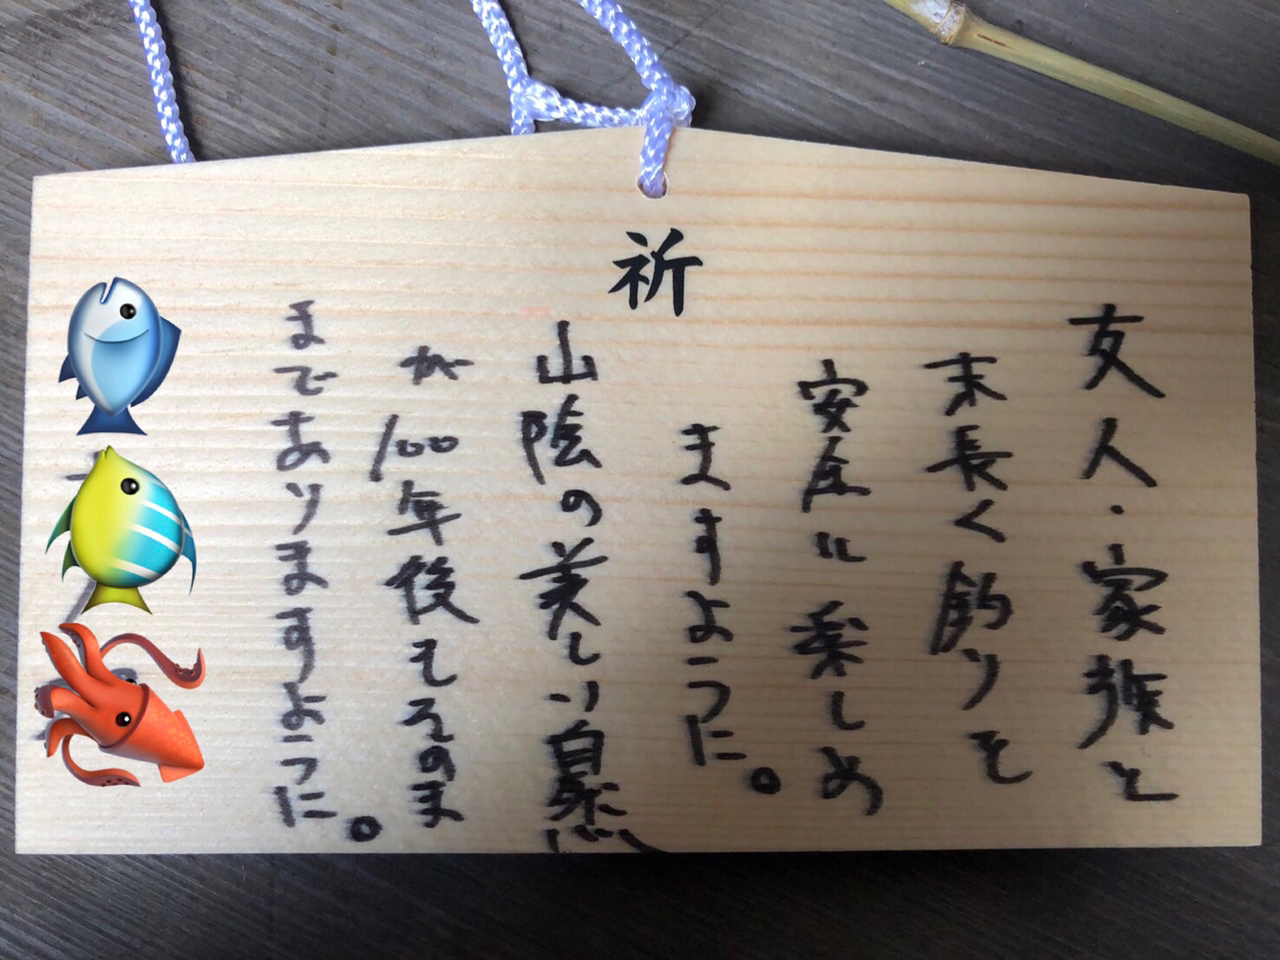 祈
友人・家族と
末長く釣りを
安全に楽しめ
ますように。
山陰の美しい自然
が100年後もそのま
までありますように。